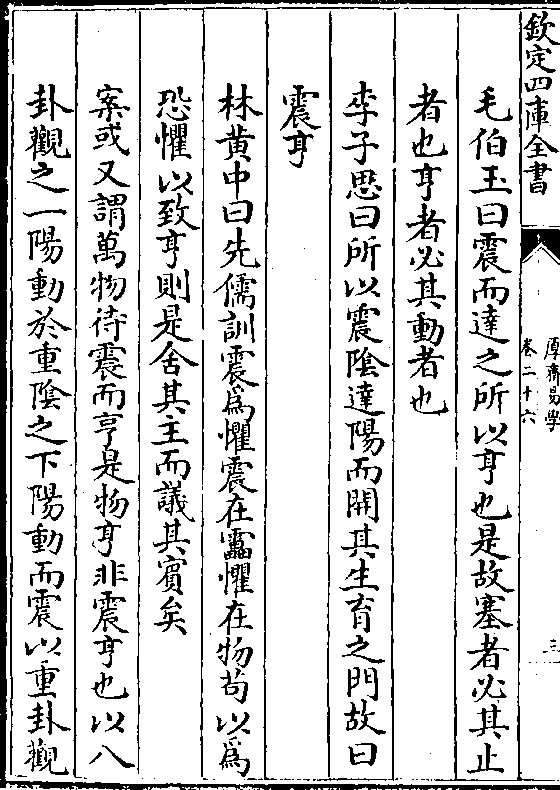 欽定四庫全書
厚齋易學
卷二十六
三
毛伯玉曰震而達之所以亨也是故塞者必其止
者也亨者必其動者也
李子思曰所以震陰達陽而開其生育之門故曰
震亨
林黄中曰先儒訓震為懼震在靁懼在物茍以為
恐懼以致亨則是舍其主而議其賓矣
案或又謂萬物待震而亨是物亨非震亨也以八
卦觀之一陽動於重陰之下陽動而震以重卦觀